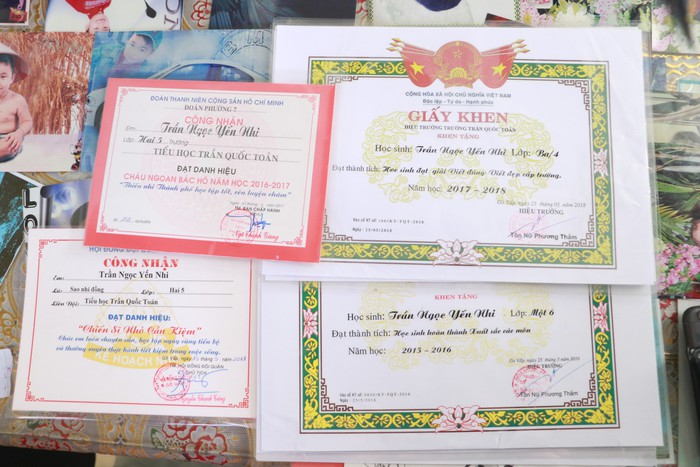 ĐOÀN THANH NIÊN CỘNG SẢN HỒ CHÍ MINH
ĐOÀN PHƯỜNG 7
CÔNG NHẬN
Em: Trần Ngọc Yến Nhi
Lớp: Hai 5 Trường
TIỂU HỌC TRẦN QUỐC TOẢN
ĐẠT DANH HIỆU
CHÁU NGOAN BÁC HỒ NĂM HỌC 2016-2017
"Thiếu nhi Thành phố học tập tốt, rèn luyện chăm"
TM. BAN CHẤP HÀNH
CỘNG HÒA XÃ HỘI CHỦ NGHĨA VIỆT NAM
Độc lập - Tự do - Hạnh phúc
GIẤY KHEN
HIỆU TRƯỞNG TRƯỜNG TRẦN QUỐC TOẢN
KHEN TẶNG
Học sinh: Trần Ngọc Yến Nhi Lớp: Ba/4
Đạt thành tích: Học sinh đạt giải Viết đúng Viết đẹp cấp trường.
Năm học: 2017 - 2018
HIỆU TRƯỞNG
Tôn Nữ Phương Thảm
CÔNG NHẬN
Em: Trần Ngọc Yến Nhi
Là: Sao nhi đồng Lớp: Hai 5
Liên Đội: Tiểu học Trần Quốc Toản
ĐẠT DANH HIỆU:
"Chiến Sĩ Nhỏ Cần Kiệm"
Chúc em luôn chuyên cần, học tập ngày càng tiến bộ
và thường xuyên thực hành tiết kiệm trong cuộc sống.
TM. HỘI ĐỒNG ĐỘI QUẬN
CHỦ TỊCH
KHEN TẶNG
Học sinh: Trần Ngọc Yến Nhi Lớp: Một 6
Đạt thành tích: Học sinh hoàn thành Xuất sắc các môn
Năm học: 2015 - 2016
HIỆU TRƯỞNG
Tôn Nữ Phương Thảm